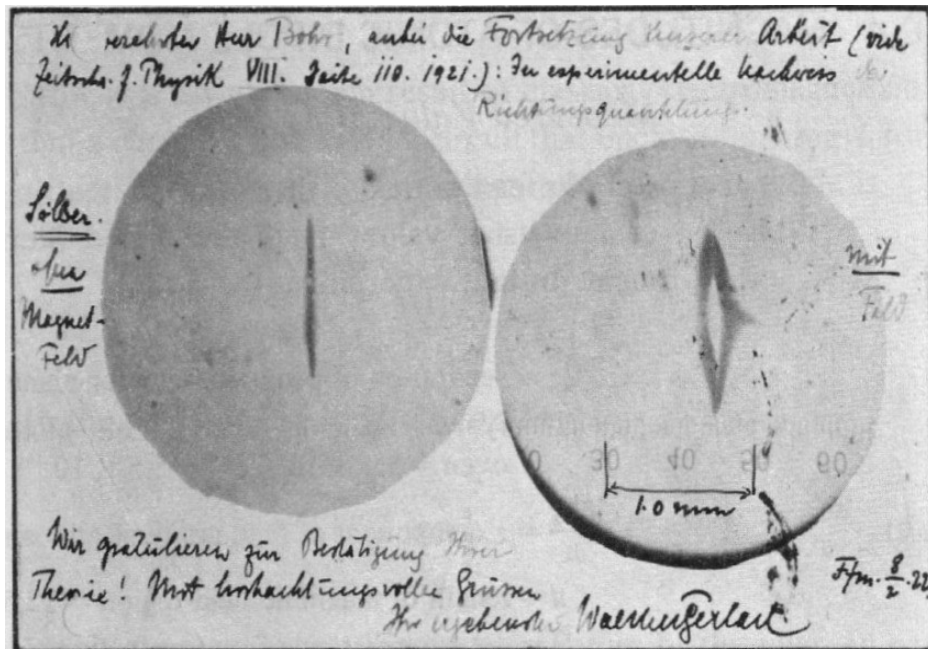 verehrter Herr Bohr, anbei die Fortsetzung unserer Arbeit (vide
Zeitschr. f. Physik VIII. Seite 110. 1921.): Der experimentelle Nachweis der
Richtungsquantelung.
Silber.
ohne
Magnet-
Feld
mit
Feld
0 30 40 50 60
1.0 mm
Wir gratulieren zur Bestätigung Ihrer
Theorie! Mit hochachtungsvollen Grüssen
Ihr ergebenster Walther Gerlach
Ffm. 8/2.22.